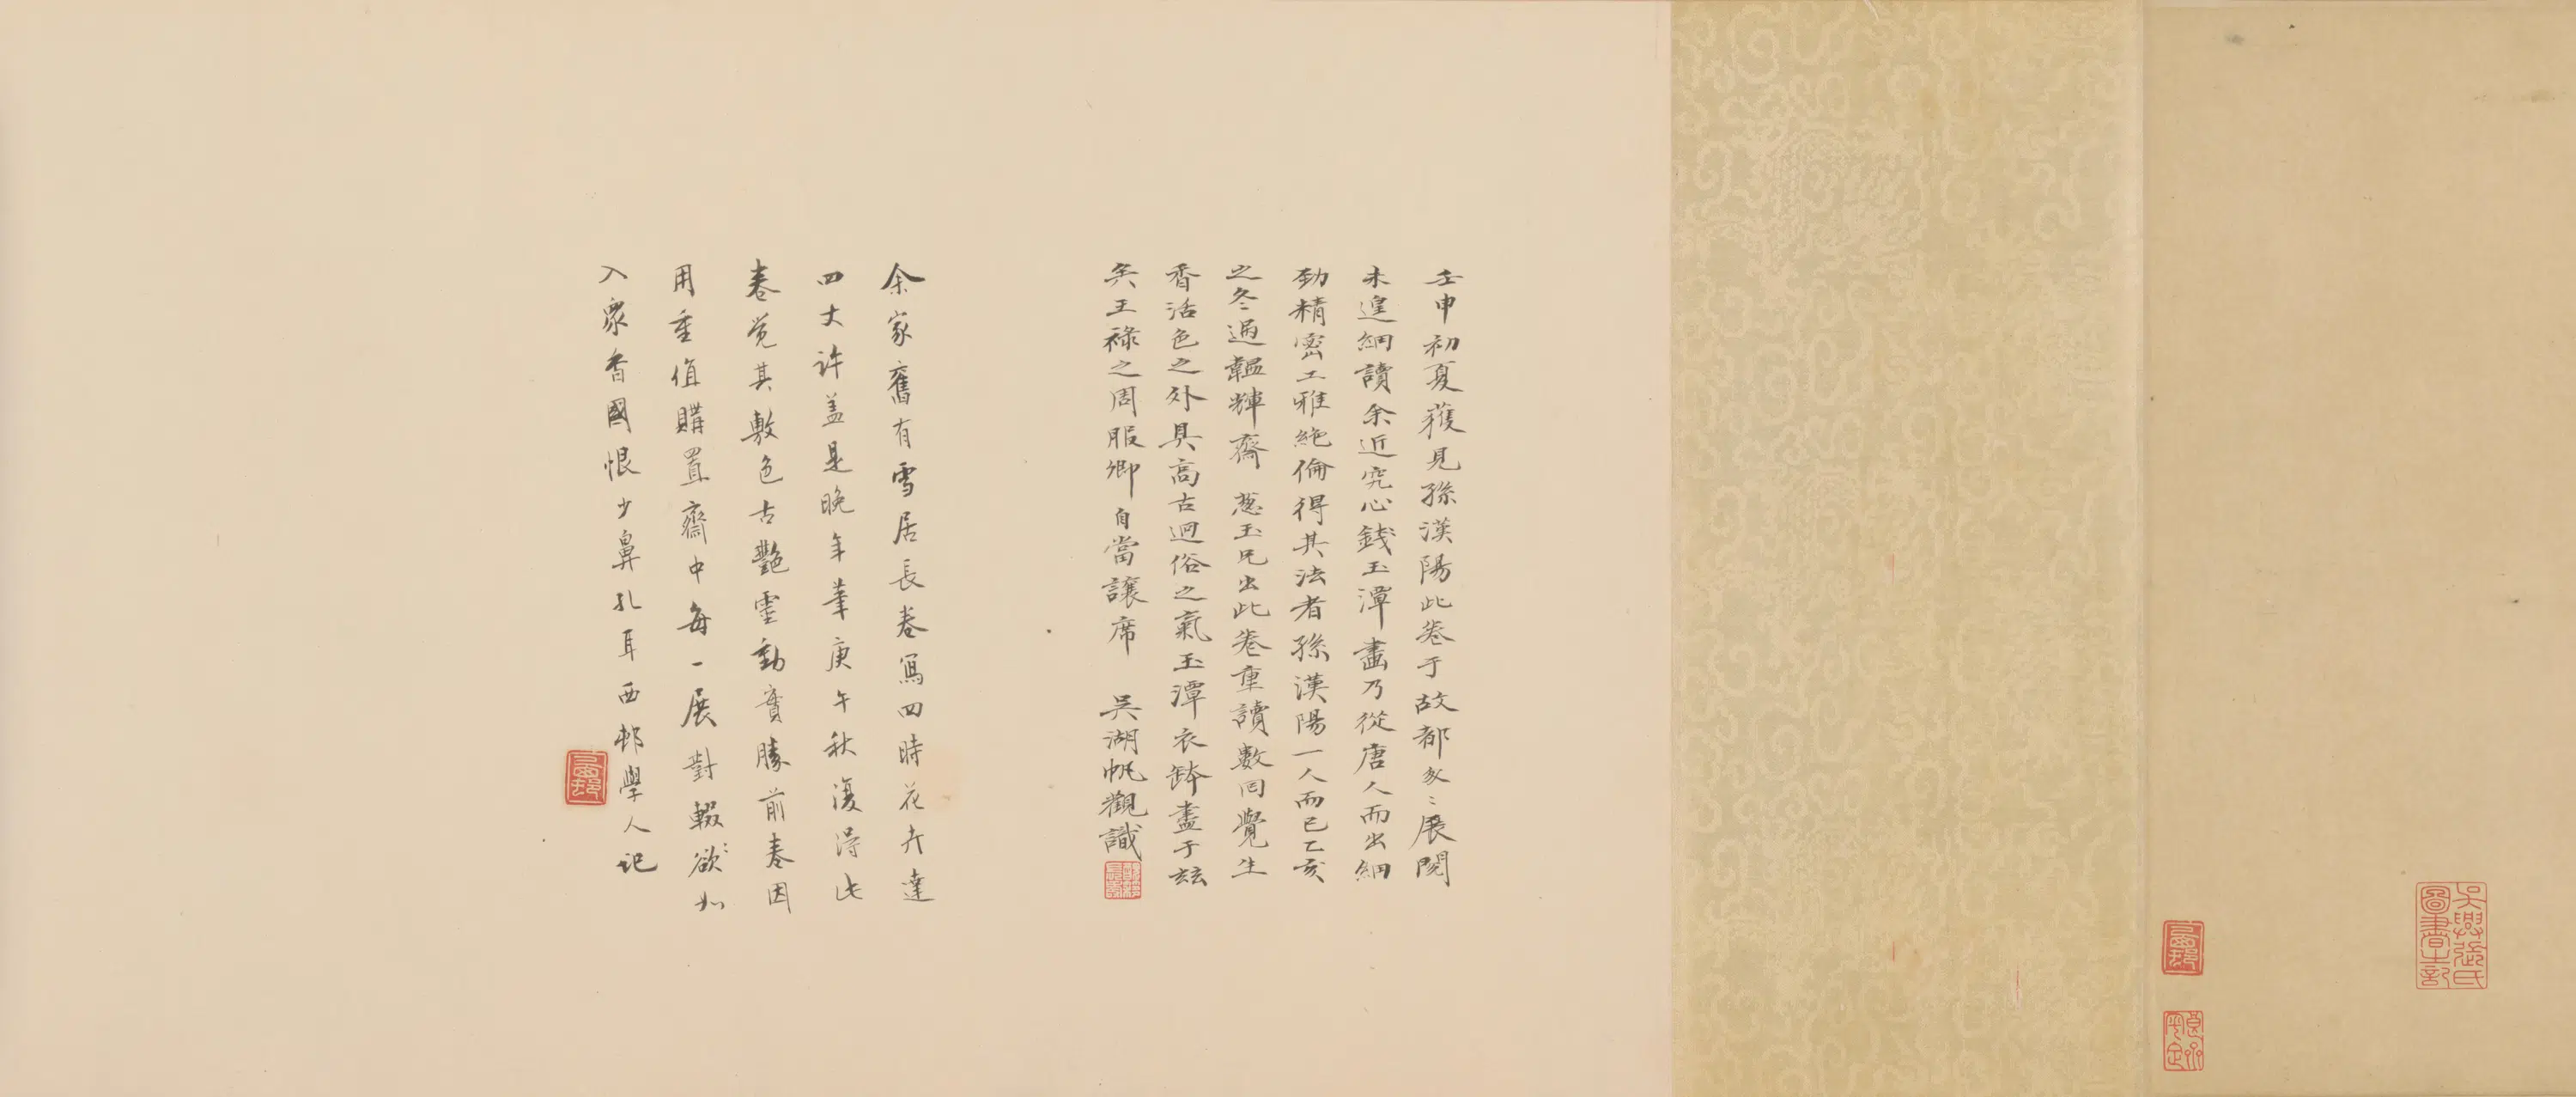 吳興張氏
圖書之記
壬申初夏獲見孫漢陽此卷于故都匆匆展閱
未遑細讀余近究心錢玉潭畫乃從唐人而出細
勁精密工雅絕倫得其法者孫漢陽一人而已乙亥
之冬過韞輝齋 蔥玉兄出此卷重讀數回覺生
香活色之外具高古迥俗之氣玉潭衣缽盡于玆
矣王祿之周服卿自當讓席 吳湖帆觀識
余家舊有雪居長卷寫四時花卉達
四丈許蓋是晚年筆庚午秋復得此
卷覺其敷色古艷靈動實勝前卷因
用重值購置齋中每一展對輟欲如
入衆香國恨少鼻孔耳西邨學人記